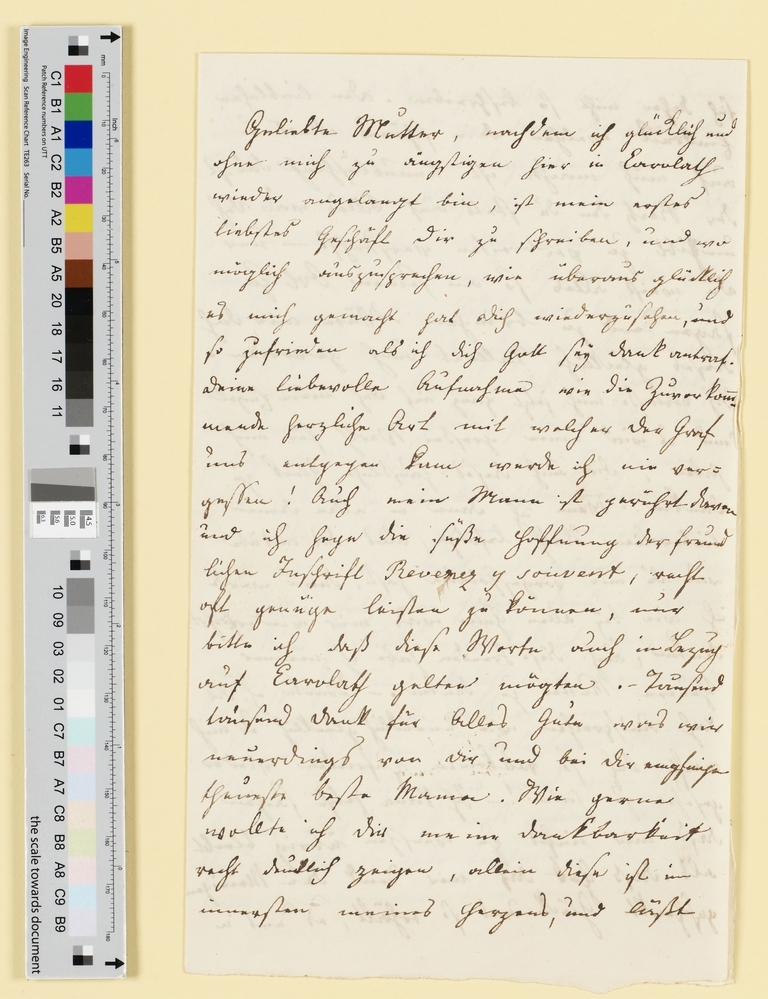 Geliebte Mutter, nachdem ich glücklich und
ohne mich zu ängstigen hier in Carolath
wieder angelangt bin, ist mein erstes
liebstes Geschäft Dir zu schreiben, und wo
möglich auszusprechen, wie überaus glücklich
es mich gemacht hat Dich wiederzusehen, und
so zufrieden als ich Dich Gott sey Dank antraf.
Deine liebevolle Aufnahme wie die Zuvorkom̄-
mende herzliche Art mit welcher der Graf
uns entgegen kam werde ich nie ver=
gessen! Auch mein Mann ist gerührt davon
und ich hege die süße Hoffnung der freund
lichen Inschrift Revenez y souvent, recht
oft genüge leisten zu können, nur
bitte ich daß diese Worte auch in Bezug
auf Carolath gelten mögten. - Tausend
tausend Dank für Alles Gute was wir
neuerdings von Dir und bei Dir empfingen
theuerste beste Mama. Wie gerne
wollte ich Dir meine Dankbarkeit
recht deutlich zeigen, allein diese ist im
innersten meines Herzens, und läßt
the scale towards document
Image Engineering Scan Reference Chart TE263 Serial No.
Patch Reference numbers on UTT
mm
inch
C1 B1 A1 C2 B2 A2 B5 A5 20 18 17 16 11
10 09 03 02 01 C7 B7 A7 C8 B8 A8 C9 B9